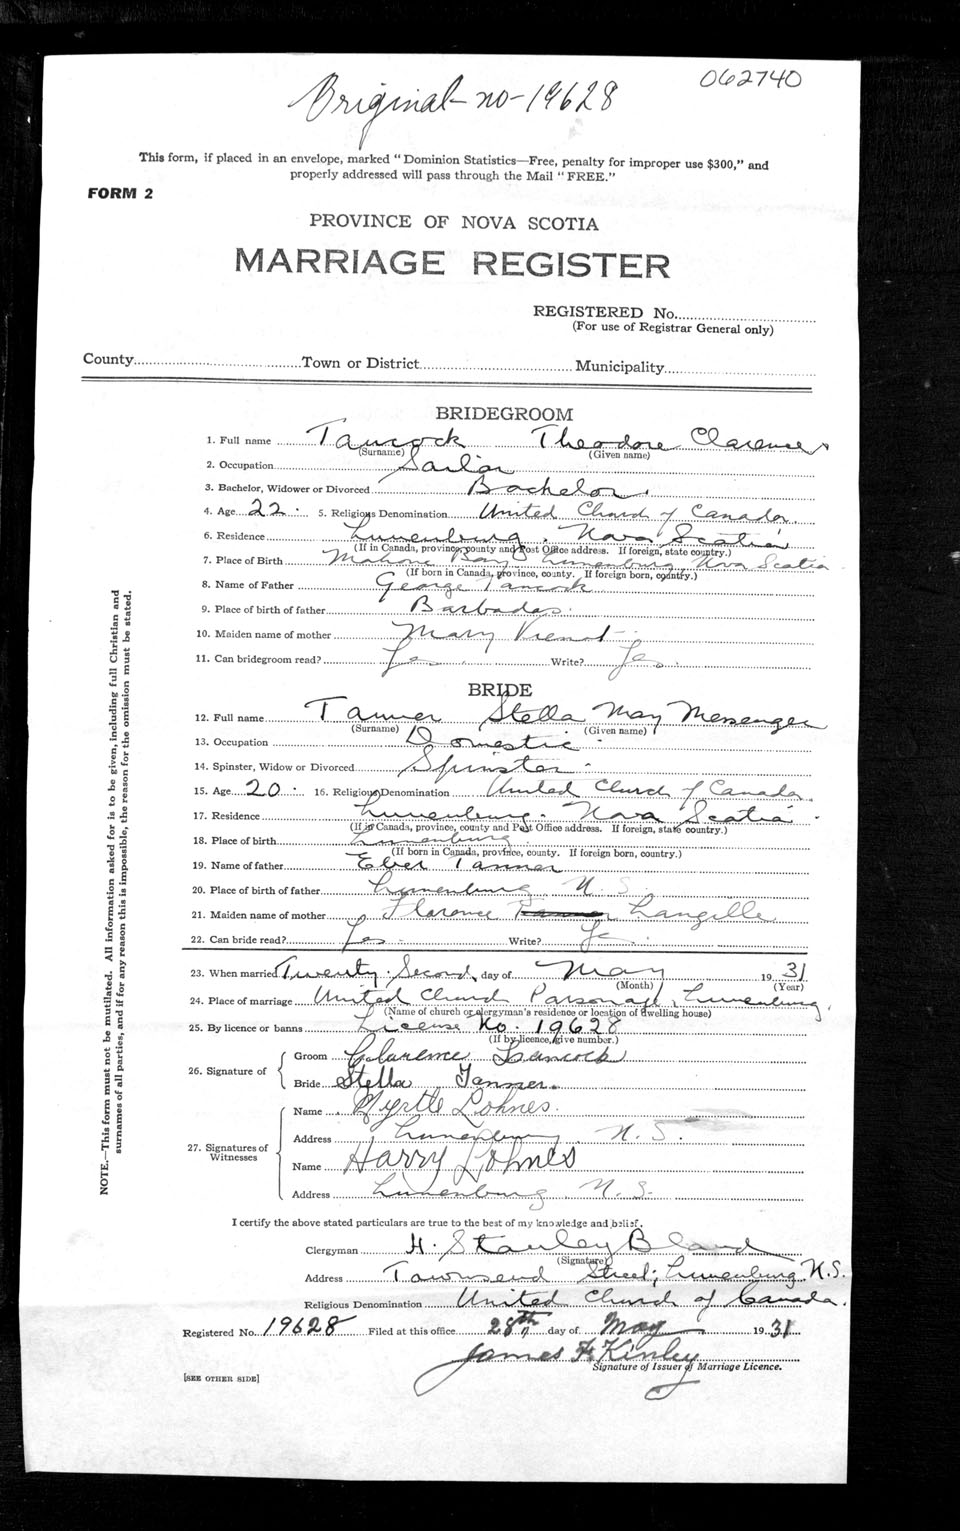 Original- no- 19628
062740
This form, if placed in an envelope, marked "Dominion Statistics—Free, penalty for improper use $300," and
properly addressed will pass through the Mail "FREE."
FORM 2
PROVINCE OF NOVA SCOTIA
MARRIAGE REGISTER
REGISTERED No.
(For use of Registrar General only)
County Town or District Municipality
BRIDEGROOM
1. Full name Tancock Theodore Clarence
(Surname) (Given name)
2. Occupation Sailor
3. Bachelor, Widower or Divorced Bachelor.
4. Age 22. 5. Religious Denomination United Church of Canada.
6. Residence Lunenburg. Nova Scotia
(If in Canada, province, county and Post Office address. If foreign, state country.)
7. Place of Birth Mahone Bay Lunenburg Nova Scotia
(If born in Canada, province, county. If foreign born, country.)
8. Name of Father George Tancock
9. Place of birth of father Barbados.
10. Maiden name of mother Mary
11. Can bridegroom read? Yes Write? Yes.
BRIDE
12. Full name Tanner Stella May Messenger
(Surname) (Given name)
13. Occupation Domestic
14. Spinster, Widow or Divorced Spinster
15. Age 20. 16. Religious Denomination United Church of Canada.
17. Residence Lunenburg. Nova Scotia.
(If in Canada, province, county and Post Office address. If foreign, state country.)
18. Place of birth Lunenburg.
(If born in Canada, province, county. If foreign born, country.)
19. Name of father Eber Tanner
20. Place of birth of father Lunenburg N. S.
21. Maiden name of mother Florence Tanner Langille
22. Can bride read? Yes Write? Yes
23. When married Twenty. Second day of May 19 31
(Month) (Year)
24. Place of marriage United Church Parsonage, Lunenburg.
(Name of church or clergyman's residence or location of dwelling house)
25. By licence or banns License No. 19628
(If by licence, give number.)
26. Signature of
Groom Clarence Tancock
Bride Stella Tanner.
27. Signatures of
Witnesses
Name Myrtle Lohnes.
Address Lunenburg N. S.
Name Harry Lohnes
Address Lunenburg N. S.
I certify the above stated particulars are true to the best of my knowledge and belief.
Clergyman H. Stanley Bland
(Signature)
Address Townsend Street, Lunenburg N.S.
Religious Denomination United Church of Canada.
Registered No. 19628 Filed at this office 28th day of May 19 31
James F Kinley
Signature of Issuer of Marriage Licence.
[SEE OTHER SIDE]
NOTE.—This form must not be mutilated. All information asked for is to be given, including full Christian and
surnames of all parties, and if for any reason this is impossible, the reason for the omission must be stated.